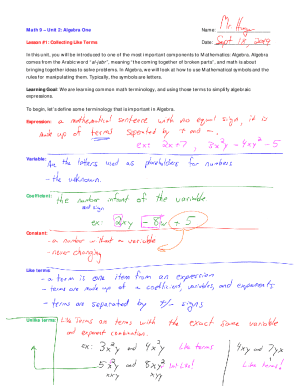 Math 9 – Unit 2: Algebra One
Name: Mr. Hagen
Lesson #1: Collecting Like Terms
Date: Sept 18, 2019
In this unit, you will be introduced to one of the most important components to Mathematics: Algebra. Algebra
comes from the Arabic word "al-jabr", meaning "the coming together of broken parts", and math is about
bringing together ideas to solve problems. In Algebra, we will look at how to use Mathematical symbols and the
rules for manipulating them. Typically, the symbols are letters.
Learning Goal: We are learning common math terminology, and using those terms to simplify algebraic
expressions.
To begin, let's define some terminology that is important in Algebra.
Expression: a mathematical sentence with no equal sign, it is
made up of terms seperated by + and -.
ex: 2x+7, 3x²y - 4xy² - 5
Variable: Are the letters used as placeholders for numbers
- the unknown.
Coefficient: the number infront of the variable
and sign
ex: 2xy - 8w + 5
Constant:
- a number without a variable
- never changing
Like terms
- a term is one item from an expression
- terms are made up of a coefficient, variables, and exponents
- terms are separated by +/- signs
Unlike terms: Like Terms are terms with the exact same variable
and exponent combination.
ex: 3x²y and 4x²y Like terms
4xy and 7yx
5x²y and 8xy² Not Like!
Like terms!
xxy xyy